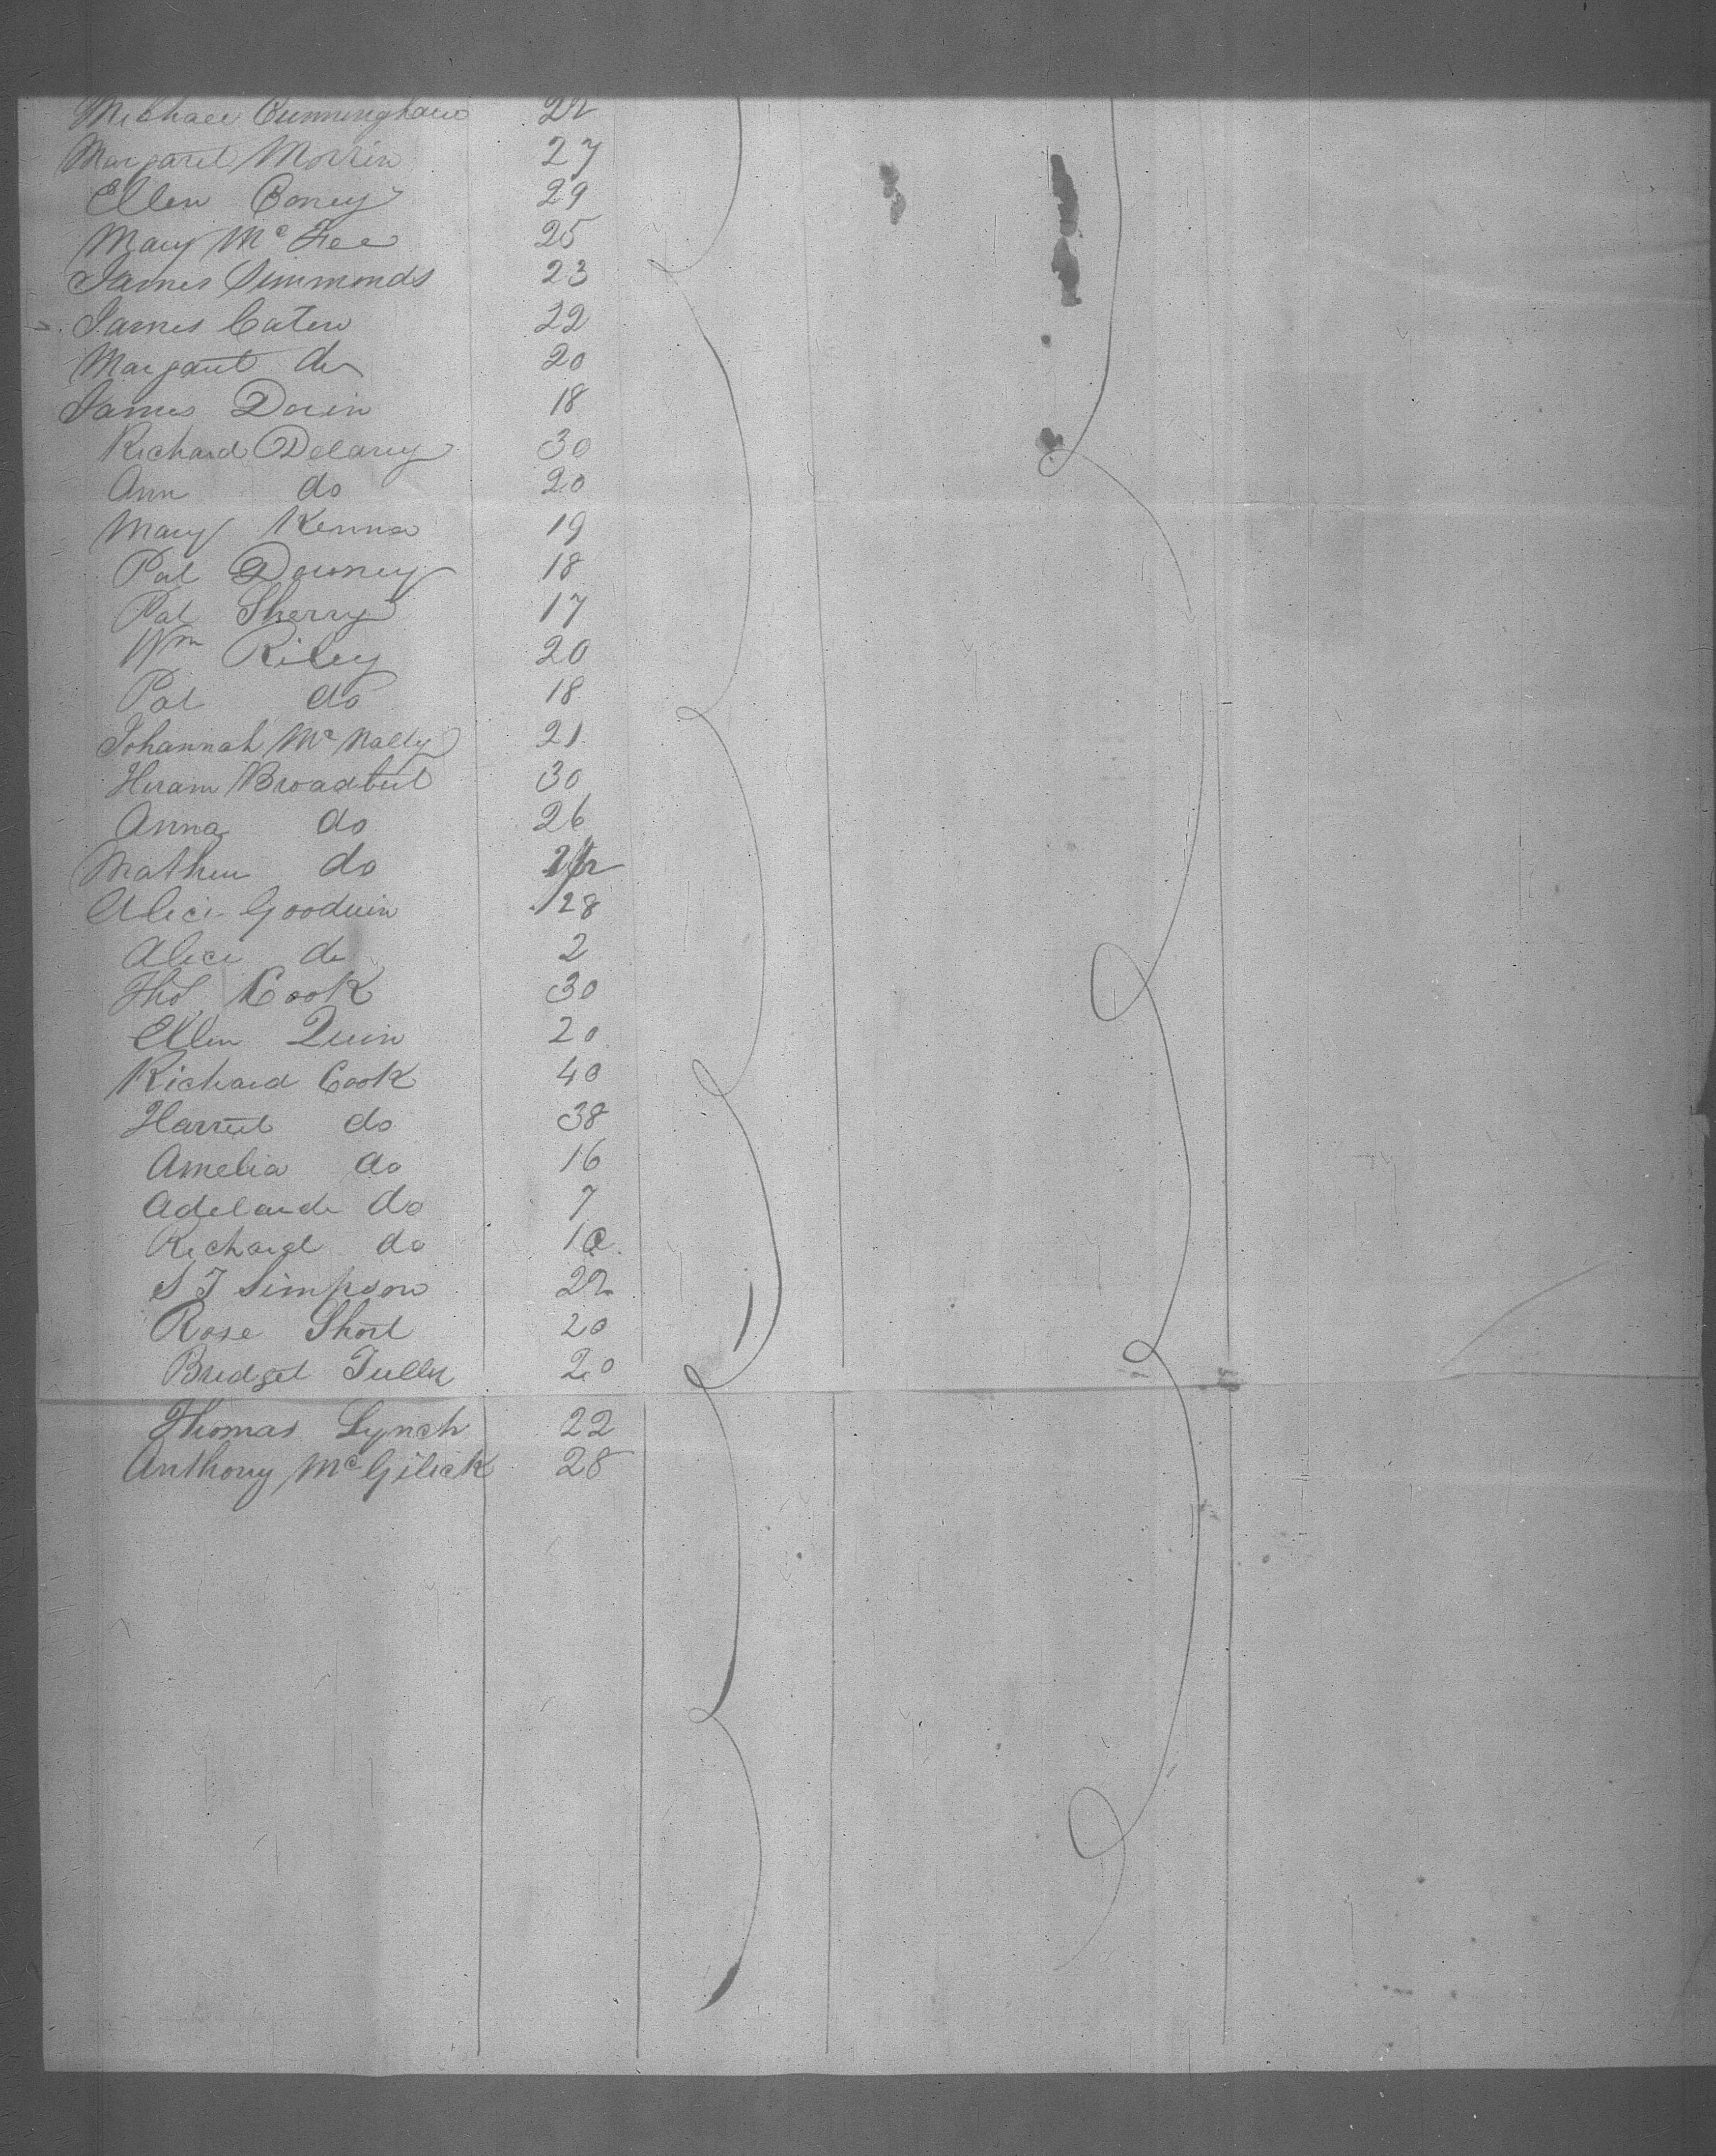 Michael Cunningham 22
Margaret Morrin 27
Ellen Coney 29
Mary Mc Fee 25
James Simmonds 23
James Caten 22
Margaret do 20
James Dorin 18
Richard Delany 30
Ann do 20
Mary Kenna 19
Pat Downey 18
Pat Sherry 17
Wm Riley 20
Pat do 18
Johannah Mc Nally 21
Hiram Broadbut 30
Anna do 26
Mathew do
Alice Goodwin 28
Alice do 2
Thos Cook 30
Ellen Quin 20
Richard Cook 40
Harriet do 38
Amelia do 16
Adelaide do 7
Richard do
S T Simpson 22
Rose Short 20
Bridget Tully 20
Thomas Lynch 22
Anthony Mc Gilick 28